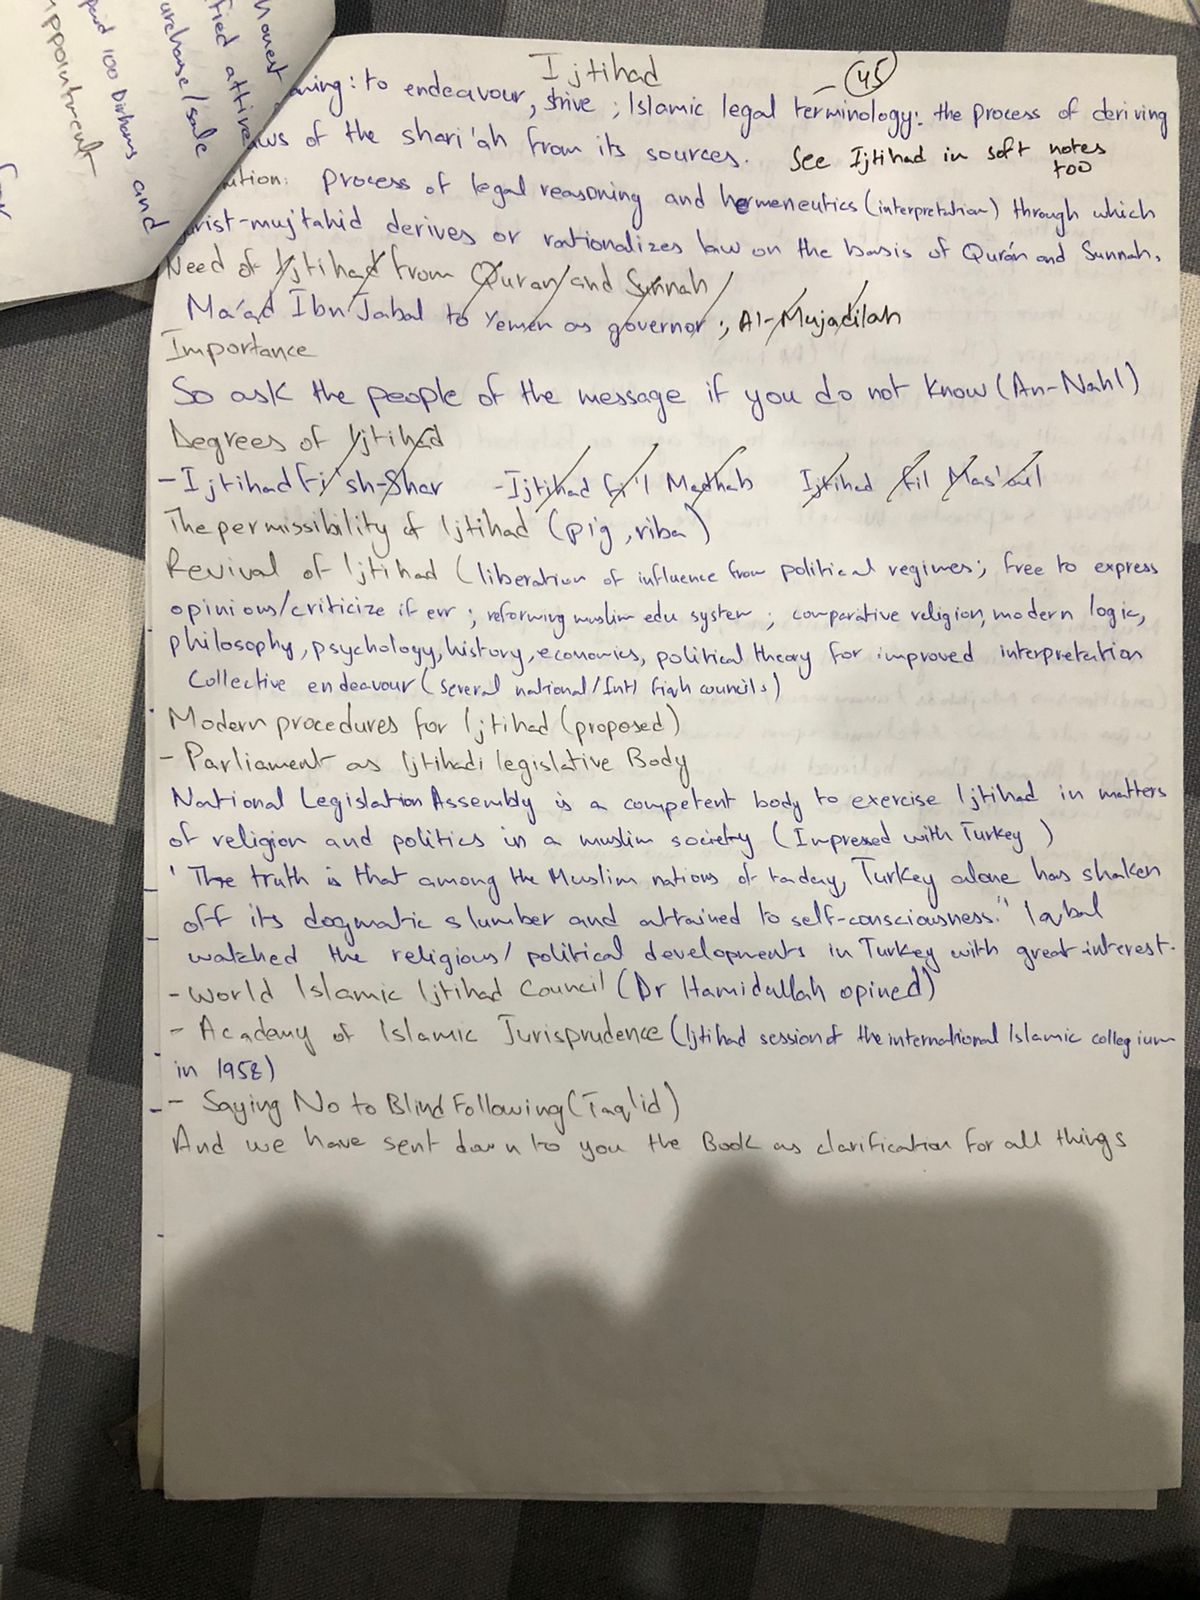 honest
fied attire
urchase/sale
paid 100 Dirhams and
ppointment
Ijtihad
45
aning: to endeavour, strive ; Islamic legal terminology: the process of deriving
aws of the shari'ah from its sources. See Ijtihad in soft notes
too
ition: Process of legal reasoning and hermeneutics (interpretation) through which
urist-mujtahid derives or rationalizes law on the basis of Qurán and Sunnah.
Need of Ijtihad from Quran and Sunnah
Ma'ad Ibn Jabal to Yemen as governor ; Al-Mujadilah
Importance
So ask the people of the message if you do not know (An-Nahl)
Degrees of Ijtihad
- Ijtihad fi'sh-Shar - Ijtihad fi'l Madhab Ijtihad fil Mas'ail
The permissibility of Ijtihad (pig, riba)
Revival of Ijtihad (liberation of influence from political regimes; free to express
opinions/criticize if err ; reforming muslim edu system ; comparative religion, modern logic,
philosophy, psychology, history, economics, political theory for improved interpretation
Collective endeavour (several national/Intl fiqh councils)
Modern procedures for Ijtihad (proposed)
- Parliament as Ijtihadi legislative Body
National Legislation Assembly is a competent body to exercise Ijtihad in matters
of religion and politics in a muslim society (Impressed with Turkey )
' The truth is that among the Muslim nations of today, Turkey alone has shaken
off its dogmatic slumber and attained to self-consciousness." Iqbal
watched the religious/ political developments in Turkey with great interest.
- World Islamic Ijtihad Council (Dr Hamidullah opined)
- Academy of Islamic Jurisprudence (Ijtihad session of the international Islamic collegium
in 1958)
- Saying No to Blind Following (Taqlid)
And we have sent down to you the Book as clarification for all things